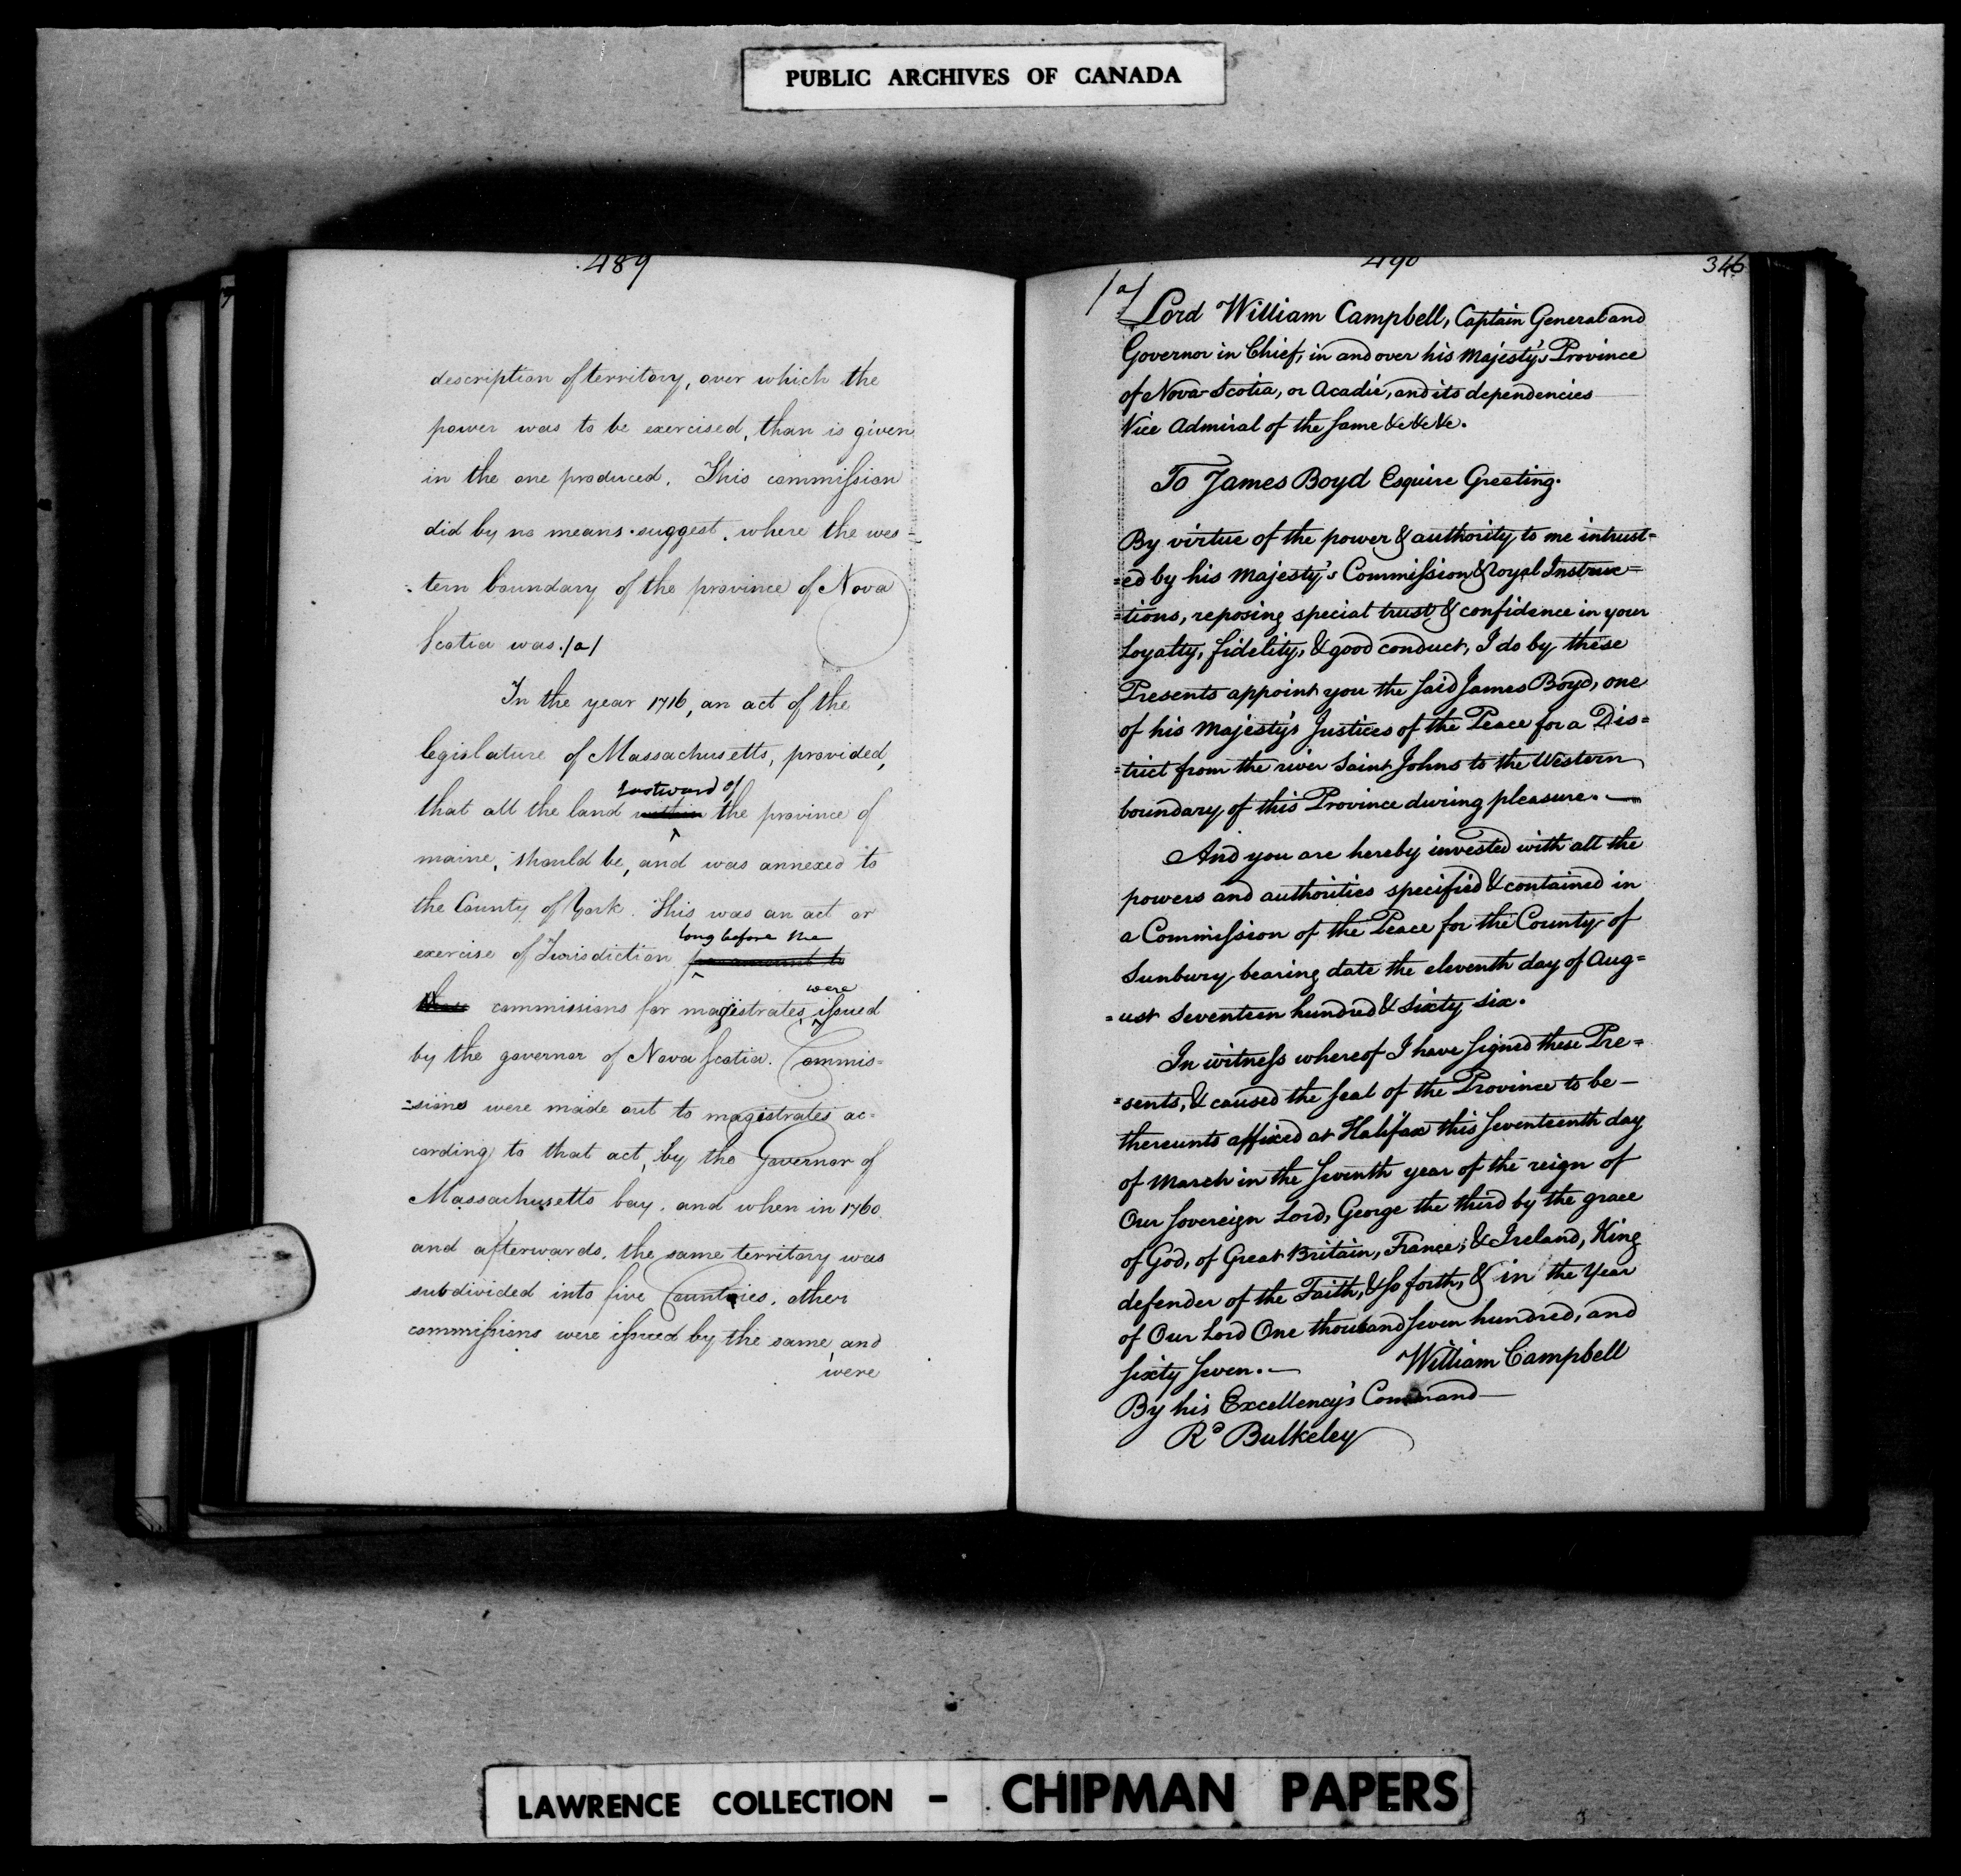 PUBLIC ARCHIVES OF CANADA
489
description of territory, over which the
power was to be exercised, than is given
in the one produced. This commission
did by no means suggest, where the wes-
-tern boundary of the province of Nova
Scotia was. /a/
In the year 1716, an act of the
legislature of Massachusetts, provided,
Eastward of
that all the land within the province of
maine, should be, and was annexed to
the County of York. This was an act or
long before the
exercise of Jurisdiction
were
commissions for magistrates, issued
by the governor of Nova Scotia. Commis-
=sions were made out to magistrates ac-
cording to that act, by the Governor of
Massachusetts bay, and when in 1760
and afterwards, the same territory was
subdivided into five Counties, other
commissions were issued by the same, and
were
490
346
/a/
Lord William Campbell, Captain General and
Governor in Chief, in and over his Majesty's Province
of Nova Scotia, or Acadie, and its dependencies
Vice Admiral of the same &c &c &c.
To James Boyd Esquire Greeting.
By virtue of the power & authority to me intrust=
=ed by his Majesty's Commission & royal Instruc=
=tions, reposing special trust & confidence in your
Loyalty, fidelity, & good conduct, I do by these
Presents appoint you the said James Boyd, one
of his Majesty's Justices of the Peace for a Dis=
=trict from the river Saint Johns to the Western
boundary of this Province during pleasure. —
And you are hereby invested with all the
powers and authorities specified & contained in
a Commission of the Peace for the County of
Sunbury bearing date the eleventh day of Aug=
=ust Seventeen hundred & Sixty six.
In witness whereof I have signed these Pre=
=sents, & caused the seal of the Province to be—
thereunto affixed at Halifax this seventeenth day
of March in the seventh year of the reign of
Our Sovereign Lord, George the third by the grace
of God, of Great Britain, France, & Ireland, King
defender of the Faith, & so forth, & in the Year
of Our Lord One thousand seven hundred, and
sixty seven. — William Campbell
By his Excellency's Command—
Rd Bulkeley
LAWRENCE COLLECTION - CHIPMAN PAPERS